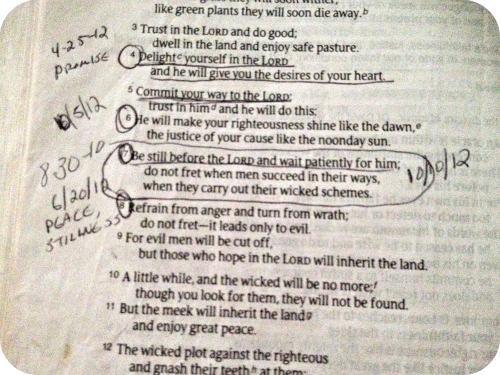 like green plants they will soon die away.b
3 Trust in the LORD and do good;
dwell in the land and enjoy safe pasture.
4-25-12
PROMISE
4 Delightc yourself in the LORD
and he will give you the desires of your heart.
5 Commit your way to the LORD;
trust in himd and he will do this:
/5/12
6 He will make your righteousness shine like the dawn,e
the justice of your cause like the noonday sun.
8-30-10
7 Be still before the LORD and wait patiently for him;
do not fret when men succeed in their ways,
when they carry out their wicked schemes.
10/10/12
6/20/12
PEACE,
STILLNESS
8 Refrain from anger and turn from wrath;
do not fret—it leads only to evil.
9 For evil men will be cut off,
but those who hope in the LORD will inherit the land.
10 A little while, and the wicked will be no more;f
though you look for them, they will not be found.
11 But the meek will inherit the landg
and enjoy great peace.
12 The wicked plot against the righteous
and gnash their teethh at them;